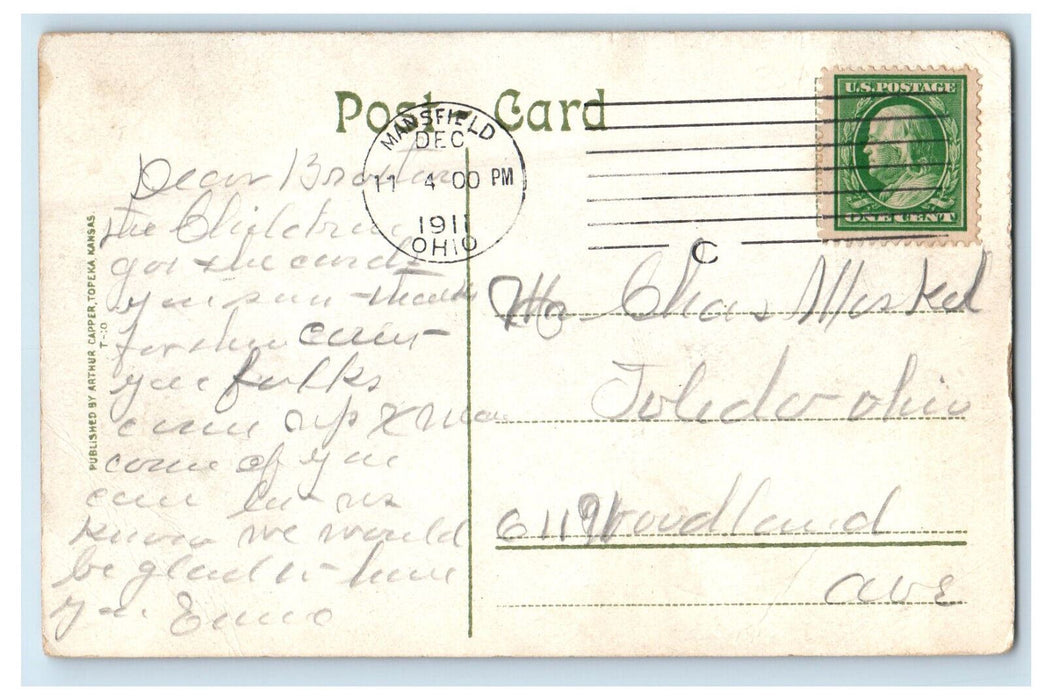 Post Card
MANSFIELD
DEC
11 4 00 PM
1911
OHIO
C
U.S. POSTAGE
ONE CENT
PUBLISHED BY ARTHUR CAPPER, TOPEKA, KANSAS.
T-10
Dear
the Children
got the cards
you sent thank
for them cant
you folks
come up Xmas
come if you
can let us
know we would
be glad to have
you
Chas
Toledo ohio
611 Woodland
ave